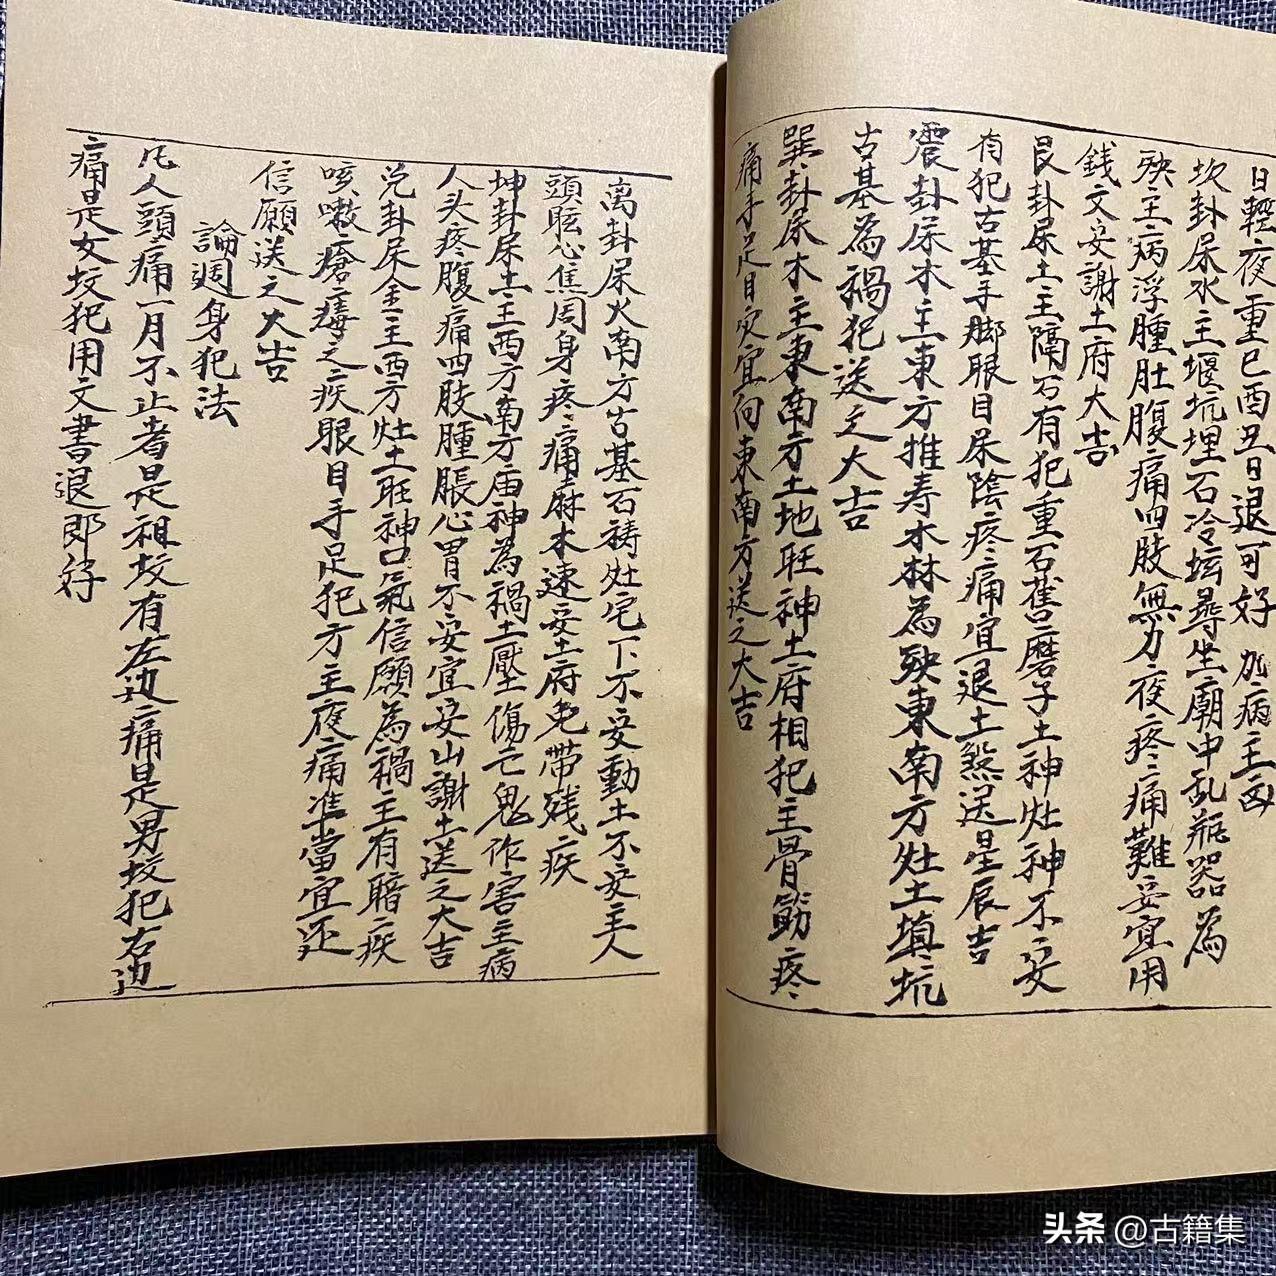 日輕夜重巳酉丑日退可好 加病主西
坎卦屬水主堰坑埋石冷坛尋坐廟中乱瓶器為
殃主病浮腫肚腹痛四肢無力夜疼痛難妥宜用
錢文妥謝土府大吉
艮卦屬土主隔石有犯重石舊磨子土神灶神不妥
有犯古基手脚眼目尿陰疼痛宜退土煞送星辰吉
震卦屬木主東方推寿木林為殃東南方灶土填坑
古基為禍犯送之大吉
巽卦屬木主東南方土地旺神土府相犯主骨筋疼
痛手足目灾宜向東南方送之大吉
离卦屬火南方古基石祷灶宅下不妥動土不妥主人
頭眩心焦周身疼痛麻木速妥土府免帶残疾
坤卦屬土主西方南方庙神為禍土壓傷亡鬼作害主病
人头疼腹痛四肢腫脹心胃不妥宜妥山謝土送之大吉
兑卦屬金主西方灶土旺神口氣信願為禍主有暗疾
咳嗽瘡毒之疾眼目手足犯方主夜痛準當宜还
信願送之大吉
論週身犯法
凡人頭痛一月不止者是祖坟有左边痛是男坟犯右边
痛是女坟犯用文書退即好
头条 @古籍集